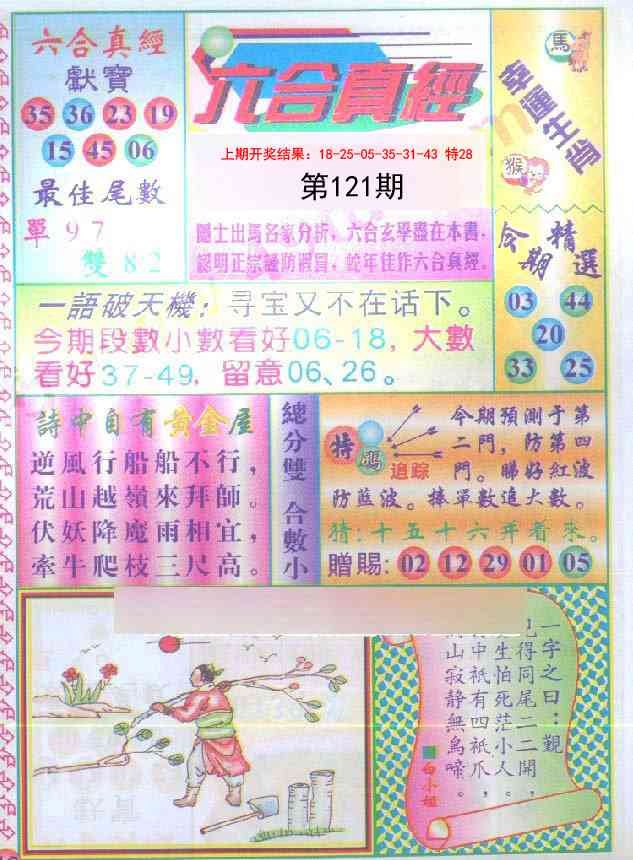 六合真經
獻寶
35 36 23 19
15 45 06
最佳尾數
單 9 7
雙 8 2
六合真經
上期开奖结果：18-25-05-35-31-43 特28
第121期
隱士出馬名家分折，六合玄學盡在本書。
認明正宗謹防假冒，蛇年佳作六合真經。
馬
幸運生肖
猴
今期精選
03 44
20
33 25
一語破天機：寻宝又不在话下。
今期段數小數看好06-18，大數
看好37-49，留意06、26。
詩中自有黃金屋
逆風行船船不行，
荒山越嶺來拜師。
伏妖降魔雨相宜，
牽牛爬枝三尺高。
總分雙 合數小
特碼追踪
今期預測于第
二門，防第四
門。睇好紅波
防藍波。捧單數追大數。
猜：十五十六开看來。
贈賜：02 12 29 01 05
一字之曰：覲
得同尾二二開，
生怕死茫小人。
中祇有四祇爪，
山寂静無鳥啼。
白小姐